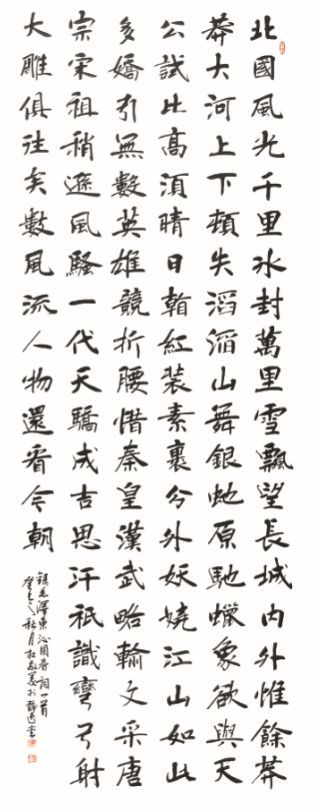 北國風光千里冰封萬里雪飄望長城内外惟餘莽
莽大河上下頓失滔滔山舞銀虵原馳蠟象欲與天
公試比高須晴日翰紅装素裹分外妖嬈江山如此
多嬌引無數英雄競折腰惜秦皇漢武略輸文采唐
宗宋祖稍遜風騷一代天驕成吉思汗祇識彎弓射
大雕俱往矣數風流人物還看今朝
錄毛澤東沁園春詞一首
癸巳秋月